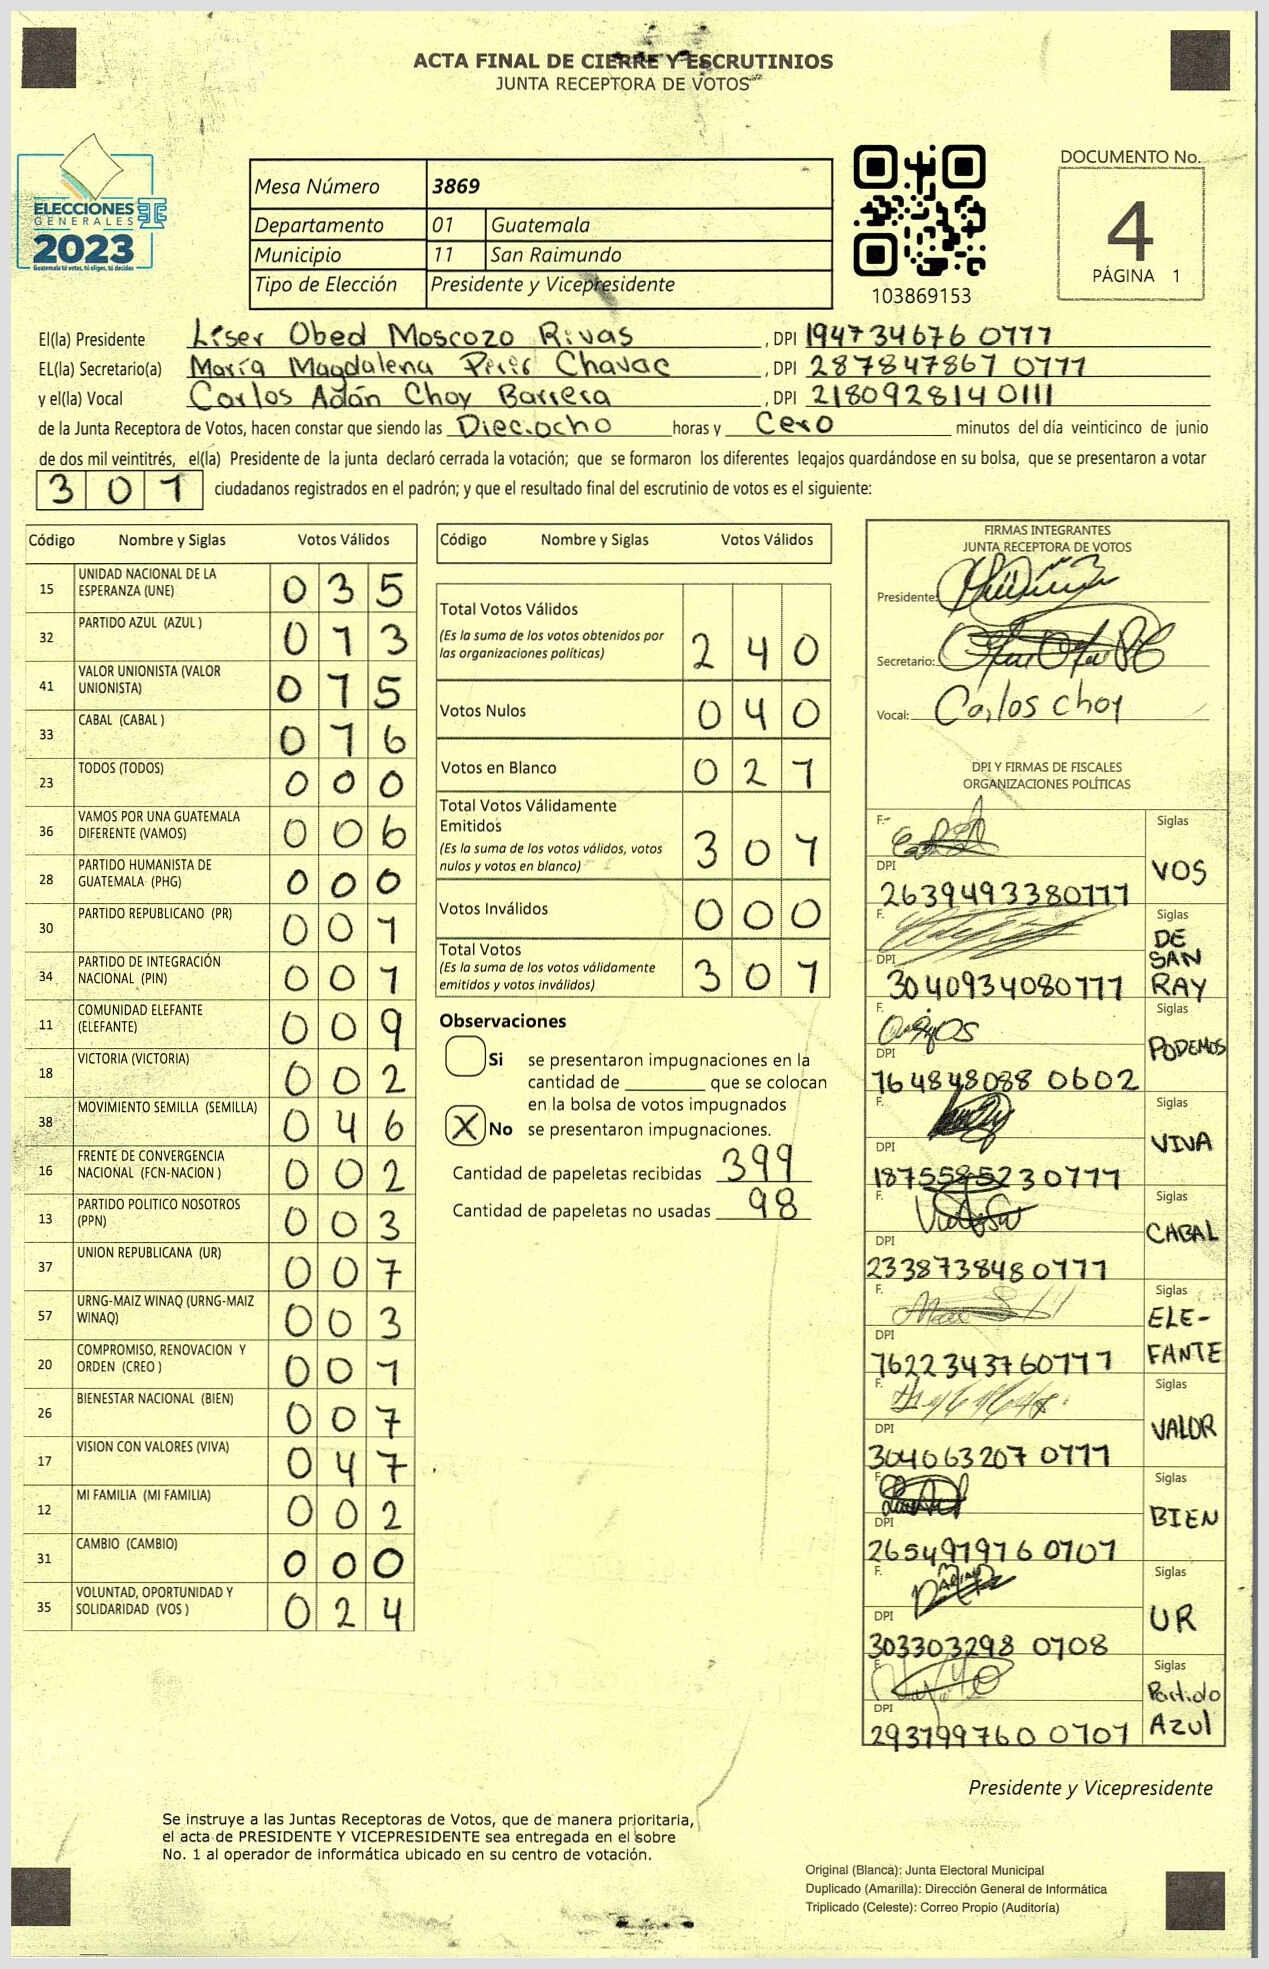 ACTA FINAL DE CIERRE Y ESCRUTINIOS
JUNTA RECEPTORA DE VOTOS
ELECCIONES
GENERALES
2023
Guatemala tú votas, tú eliges, tú decides
Mesa Número 3869
Departamento 01 Guatemala
Municipio 11 San Raimundo
Tipo de Elección Presidente y Vicepresidente
103869153
DOCUMENTO No.
4
PÁGINA 1
El(la) Presidente Liser Obed Moscozo Rivas, DPI 194734676 0111
EL(la) Secretario(a) María Magdalena Chavac, DPI 287847867 0111
y el(la) Vocal Carlos Adán Choy Barrera, DPI 218092814 0111
de la Junta Receptora de Votos, hacen constar que siendo las Dieciocho horas y Cero minutos del día veinticinco de junio
de dos mil veintitrés, el(la) Presidente de la junta declaró cerrada la votación; que se formaron los diferentes legajos guardándose en su bolsa, que se presentaron a votar
301 ciudadanos registrados en el padrón; y que el resultado final del escrutinio de votos es el siguiente:
Código Nombre y Siglas Votos Válidos
15 UNIDAD NACIONAL DE LA ESPERANZA (UNE) 035
32 PARTIDO AZUL (AZUL ) 013
41 VALOR UNIONISTA (VALOR UNIONISTA) 015
33 CABAL (CABAL ) 016
23 TODOS (TODOS) 000
36 VAMOS POR UNA GUATEMALA DIFERENTE (VAMOS) 006
28 PARTIDO HUMANISTA DE GUATEMALA (PHG) 000
30 PARTIDO REPUBLICANO (PR) 001
34 PARTIDO DE INTEGRACIÓN NACIONAL (PIN) 001
11 COMUNIDAD ELEFANTE (ELEFANTE) 009
18 VICTORIA (VICTORIA) 002
38 MOVIMIENTO SEMILLA (SEMILLA) 046
16 FRENTE DE CONVERGENCIA NACIONAL (FCN-NACION ) 002
13 PARTIDO POLITICO NOSOTROS (PPN) 003
37 UNION REPUBLICANA (UR) 007
57 URNG-MAIZ WINAQ (URNG-MAIZ WINAQ) 003
20 COMPROMISO, RENOVACION Y ORDEN (CREO ) 001
26 BIENESTAR NACIONAL (BIEN) 007
17 VISION CON VALORES (VIVA) 047
12 MI FAMILIA (MI FAMILIA) 002
31 CAMBIO (CAMBIO) 000
35 VOLUNTAD, OPORTUNIDAD Y SOLIDARIDAD (VOS ) 024
Código Nombre y Siglas Votos Válidos
Total Votos Válidos
(Es la suma de los votos obtenidos por
las organizaciones políticas) 240
Votos Nulos 040
Votos en Blanco 021
Total Votos Válidamente
Emitidos
(Es la suma de los votos válidos, votos
nulos y votos en blanco) 301
Votos Inválidos 000
Total Votos
(Es la suma de los votos válidamente
emitidos y votos inválidos) 301
Observaciones
Si se presentaron impugnaciones en la
cantidad de ________ que se colocan
en la bolsa de votos impugnados
X No se presentaron impugnaciones.
Cantidad de papeletas recibidas 399
Cantidad de papeletas no usadas 98
FIRMAS INTEGRANTES
JUNTA RECEPTORA DE VOTOS
Presidente:
Secretario:
Vocal: Carlos Choy
DPI Y FIRMAS DE FISCALES
ORGANIZACIONES POLÍTICAS
F. Siglas
DPI 2639493380111 VOS
F. Siglas
DPI 3040934080111 DE SAN RAY
F. Siglas
DPI 164848088 0602 PODEMOS
F. Siglas
DPI 1875585230111 VIVA
F. Siglas
DPI 2338738480111 CABAL
F. Siglas
DPI 1622343760111 ELE-FANTE
F. Siglas
DPI 304063207 0111 VALOR
F. Siglas
DPI 265491916 0101 BIEN
F. Siglas
DPI 303303298 0108 UR
F. Siglas
DPI 293199760 0101 Partido Azul
Presidente y Vicepresidente
Se instruye a las Juntas Receptoras de Votos, que de manera prioritaria,
el acta de PRESIDENTE Y VICEPRESIDENTE sea entregada en el sobre
No. 1 al operador de informática ubicado en su centro de votación.
Original (Blanca): Junta Electoral Municipal
Duplicado (Amarilla): Dirección General de Informática
Triplicado (Celeste): Correo Propio (Auditoría)